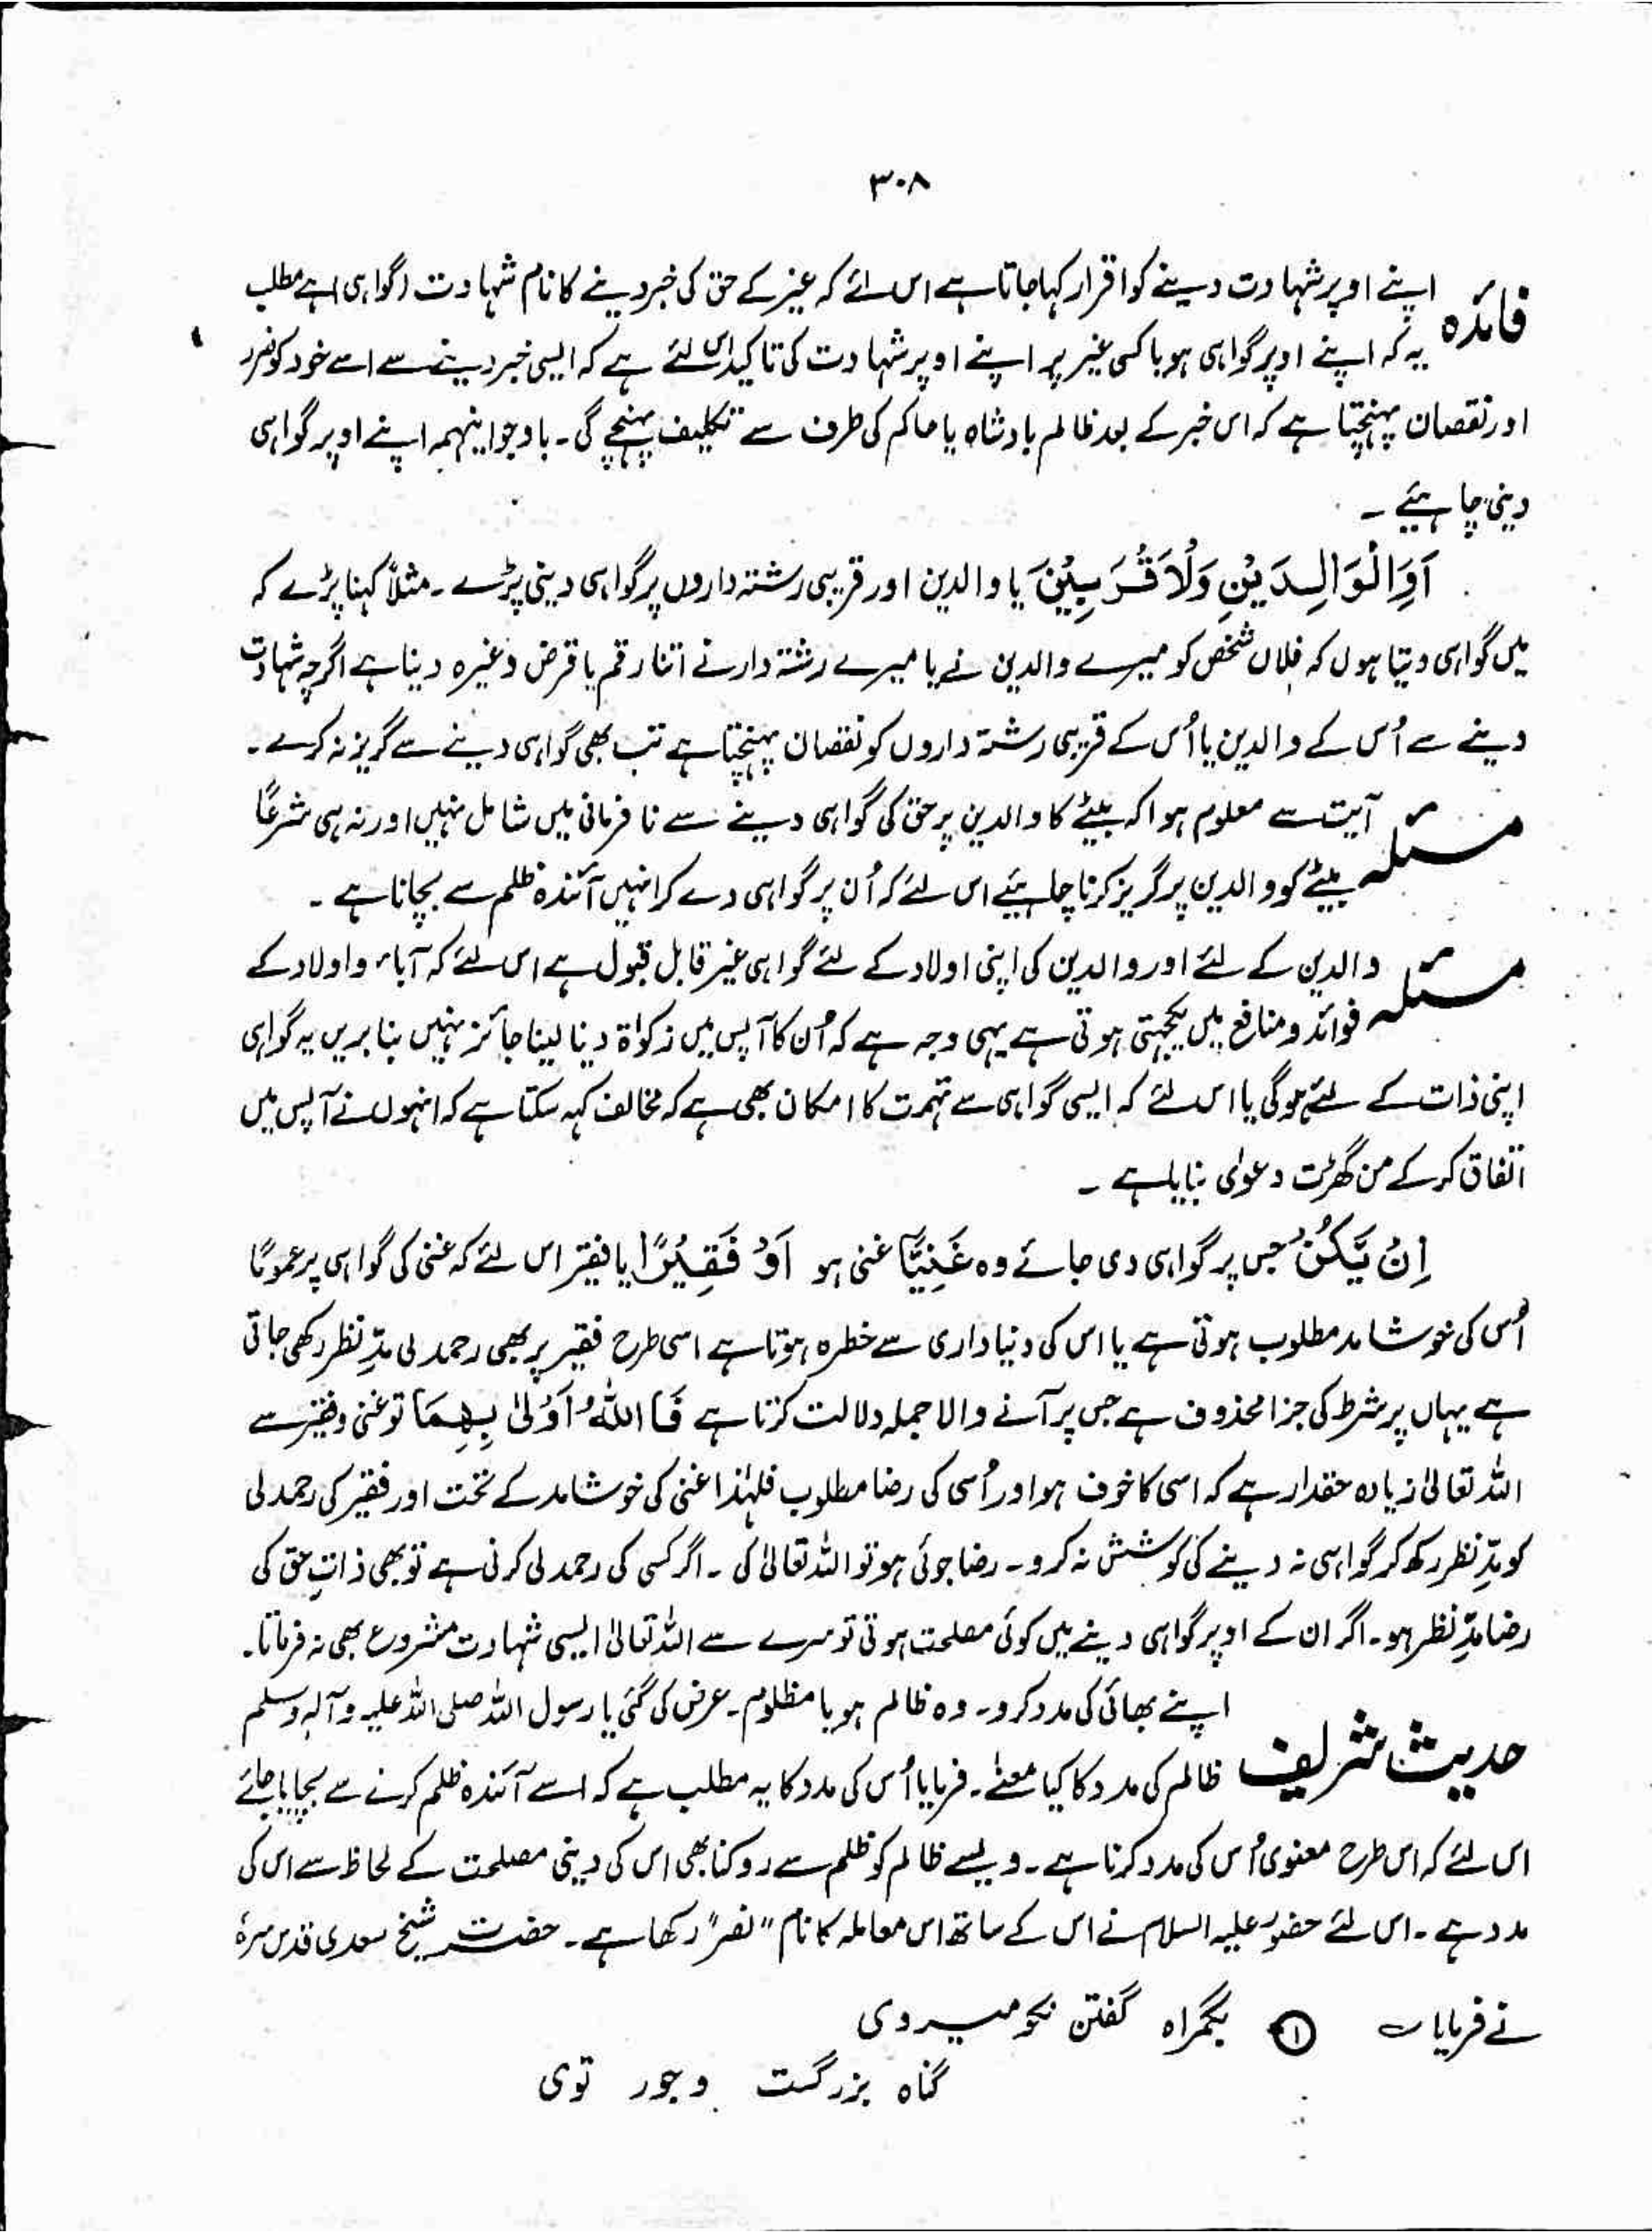 ۳۰۸
فائدہ اپنے اوپر شہادت دینے کو اقرار کہا جاتا ہے اس لئے کہ غیر کے حق کی خبر دینے کا نام شہادت (گواہی) ہے مطلب
یہ کہ اپنے اوپر گواہی ہو یا کسی غیر پر اپنے اوپر شہادت کی تاکید اس لئے ہے کہ ایسی خبر دینے سے اسے خود کو ضرر
اور نقصان پہنچتا ہے کہ اس خبر کے بعد ظالم بادشاہ یا حاکم کی طرف سے تکلیف پہنچے گی۔ باوجود اینہمہ اپنے اوپر گواہی
دینی چاہیئے ۔
اَوِ الْوَالِدَیْنِ وَلْاَقْرَبِیْنَ یا والدین اور قریبی رشتہ داروں پر گواہی دینی پڑے ۔ مثلاً کہنا پڑے کہ
میں گواہی دیتا ہوں کہ فلاں شخص کو میرے والدین نے یا میرے رشتہ دار نے اتنا رقم یا قرض وغیرہ دینا ہے اگرچہ شہادت
دینے سے اُس کے والدین یا اُس کے قریبی رشتہ داروں کو نقصان پہنچتا ہے تب بھی گواہی دینے سے گریز نہ کرے ۔
مسئلہ آیت سے معلوم ہوا کہ بیٹے کا والدین پر حق کی گواہی دینے سے نافرمانی میں شامل نہیں اور نہ ہی شرعًا
بیٹے کو والدین پر گریز کرنا چاہیئے اس لئے کہ اُن پر گواہی دے کر انہیں آئندہ ظلم سے بچانا ہے ۔
مسئلہ والدین کے لئے اور والدین کی اپنی اولاد کے لئے گواہی غیر قابل قبول ہے اس لئے کہ آباء و اولاد کے
فوائد و منافع میں یکجہتی ہوتی ہے یہی وجہ ہے کہ اُن کا آپس میں زکواۃ دینا لینا جائز نہیں بنا بریں یہ گواہی
اپنی ذات کے لئے ہوگی یا اس لئے کہ ایسی گواہی سے تہمت کا امکان بھی ہے کہ مخالف کہہ سکتا ہے کہ انہوں نے آپس میں
اتفاق کر کے من گھڑت دعویٰ بنایا ہے ۔
اِنْ یَّکُنْ جس پر گواہی دی جائے وہ غَنِیًّا غنی ہو اَوْ فَقِیْرًا یا فقیر اس لئے کہ غنی کی گواہی پر عمومًا
اُس کی خوشامد مطلوب ہوتی ہے یا اس کی دنیاداری سے خطرہ ہوتا ہے اسی طرح فقیر پر بھی رحمدلی مدِّ نظر رکھی جاتی
ہے یہاں پر شرط کی جزا محذوف ہے جس پر آنے والا جملہ دلالت کرتا ہے فَااللّٰہُ اَوْلیٰ بِهِمَا تو غنی و فقیر سے
اللہ تعالیٰ زیادہ حقدار ہے کہ اسی کا خوف ہو اور اُسی کی رضا مطلوب فلہٰذا غنی کی خوشامد کے تحت اور فقیر کی رحمدلی
کو مدِّ نظر رکھ کر گواہی نہ دینے کی کوشش نہ کرو ۔ رضا جوئی ہو تو اللہ تعالیٰ کی ۔ اگر کسی کی رحمدلی کرنی ہے تو بھی ذاتِ حق کی
رضا مدِّ نظر ہو ۔ اگر ان کے اوپر گواہی دینے میں کوئی مصلحت ہوتی تو سرے سے اللہ تعالیٰ ایسی شہادت مشروع بھی نہ فرماتا ۔
حدیث شریف اپنے بھائی کی مدد کرو ۔ وہ ظالم ہو یا مظلوم ۔ عرض کی گئی یا رسول اللہ صلی اللہ علیہ وآلہٖ وسلم
ظالم کی مدد کا کیا معنےٰ ۔ فرمایا اُس کی مدد کا یہ مطلب ہے کہ اسے آئندہ ظلم کرنے سے بچایا جائے
اس لئے کہ اس طرح معنوی اُس کی مدد کرنا ہے ۔ ویسے ظالم کو ظلم سے روکنا بھی اس کی دینی مصلحت کے لحاظ سے اس کی
مدد ہے ۔ اس لئے حضور علیہ السلام نے اس کے ساتھ اس معاملہ کا نام "نصر" رکھا ہے ۔ حضرت شیخ سعدی قدس سرہٗ
نے فرمایا ؎ ① بگمراہ گفتن نکو میروی
گناہ بزرگست و جور قوی